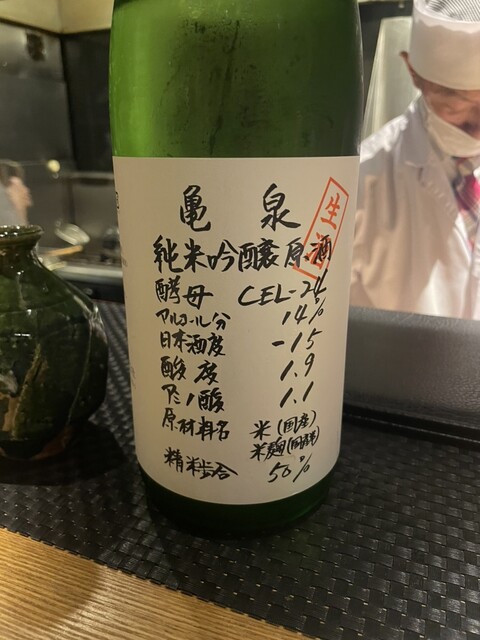 亀泉
生酒
純米吟醸原酒
酵母 CEL-24
アルコール分 14%
日本酒度 -15
酸度 1.9
アミノ酸 1.1
原材料名 米(国産)
米麹(国産米)
精米歩合 50%